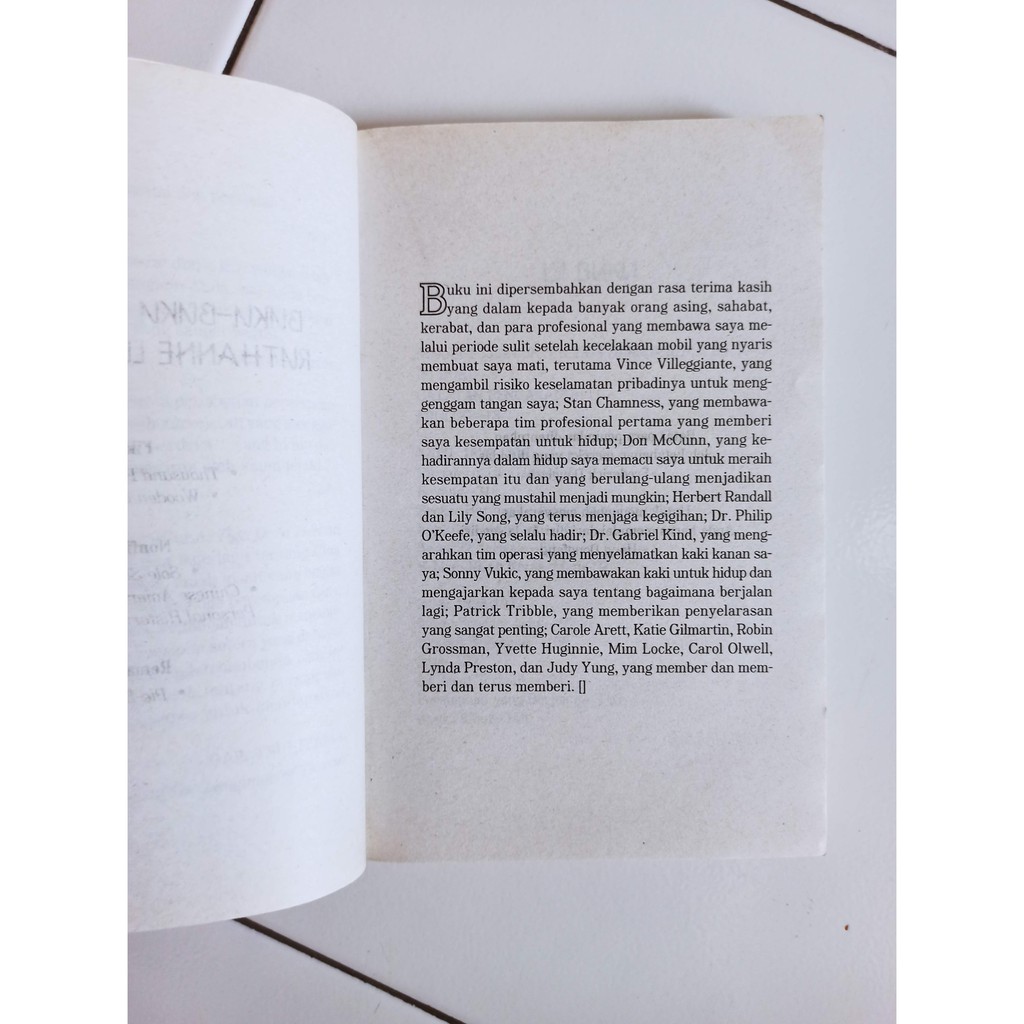 Buku ini dipersembahkan dengan rasa terima kasih
yang dalam kepada banyak orang asing, sahabat,
kerabat, dan para profesional yang membawa saya me-
lalui periode sulit setelah kecelakaan mobil yang nyaris
membuat saya mati, terutama Vince Villeggiante, yang
mengambil risiko keselamatan pribadinya untuk meng-
genggam tangan saya; Stan Chamness, yang membawa-
kan beberapa tim profesional pertama yang memberi
saya kesempatan untuk hidup; Don McCunn, yang ke-
hadirannya dalam hidup saya memacu saya untuk meraih
kesempatan itu dan yang berulang-ulang menjadikan
sesuatu yang mustahil menjadi mungkin; Herbert Randall
dan Lily Song, yang terus menjaga kegigihan; Dr. Philip
O'Keefe, yang selalu hadir; Dr. Gabriel Kind, yang meng-
arahkan tim operasi yang menyelamatkan kaki kanan sa-
ya; Sonny Vukic, yang membawakan kaki untuk hidup dan
mengajarkan kepada saya tentang bagaimana berjalan
lagi; Patrick Tribble, yang memberikan penyelarasan
yang sangat penting; Carole Arett, Katie Gilmartin, Robin
Grossman, Yvette Huginnie, Mim Locke, Carol Olwell,
Lynda Preston, dan Judy Yung, yang member dan mem-
beri dan terus memberi. []